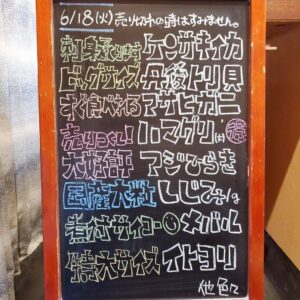 6/18(火)売り切れの時はすみません。
刺身できます ケンサキイカ
ビッグサイズ 丹後トリ貝
すぐ食べれる マサヒガニ
売りつくし! ハマグリ
大好評 マジひらき
国産大粒 しじみ
煮付サイコー メバル
特大サイズ イトヨリ
他色々